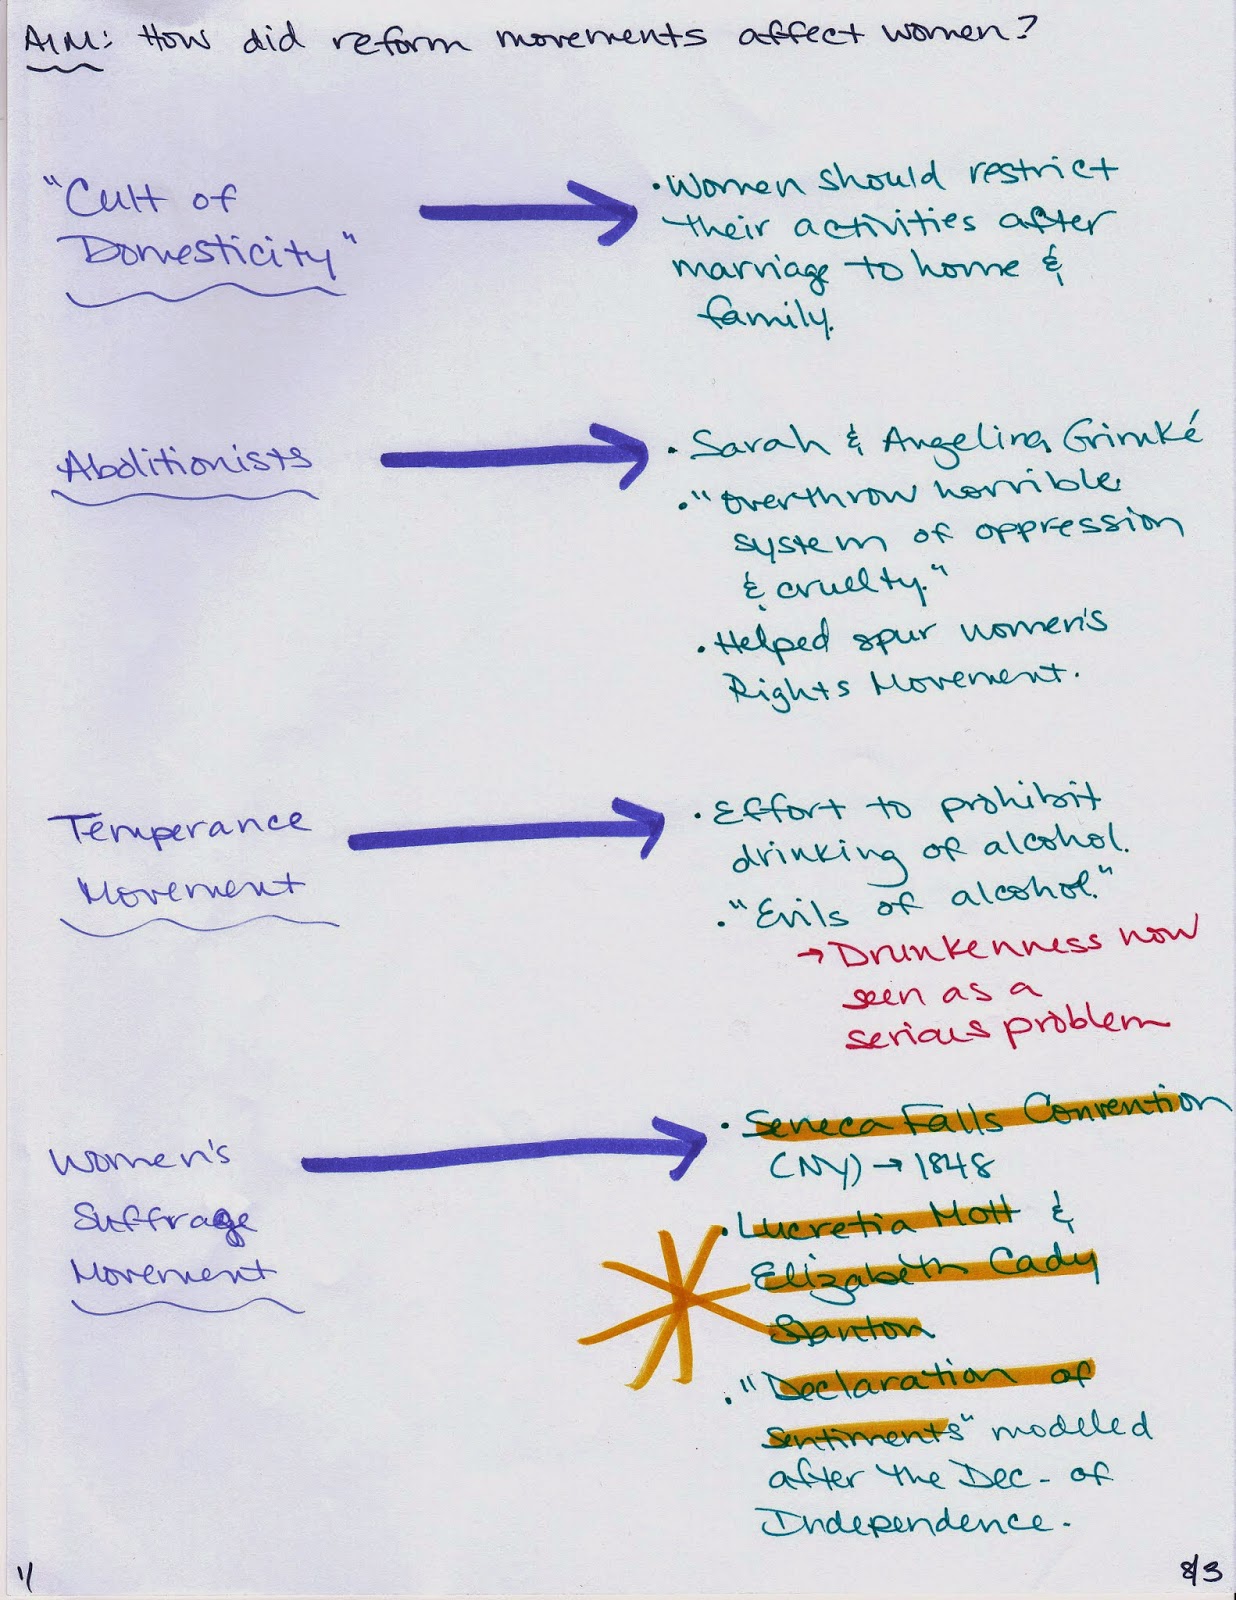 AIM: How did reform movements affect women?
"Cult of
Domesticity"
• Women should restrict
their activities after
marriage to home &
family.
Abolitionists
• Sarah & Angelina Grimké
• "overthrow horrible
system of oppression
& cruelty."
• Helped spur women's
Rights Movement.
Temperance
Movement
• Effort to prohibit
drinking of alcohol.
• "Evils of alcohol."
→ Drunkenness now
seen as a
serious problem
Women's
Suffrage
Movement
• Seneca Falls Convention
(NY) → 1848
• Lucretia Mott &
Elizabeth Cady
Stanton
• "Declaration of
Sentiments" modeled
after the Dec. of
Independence.
1/
8/3